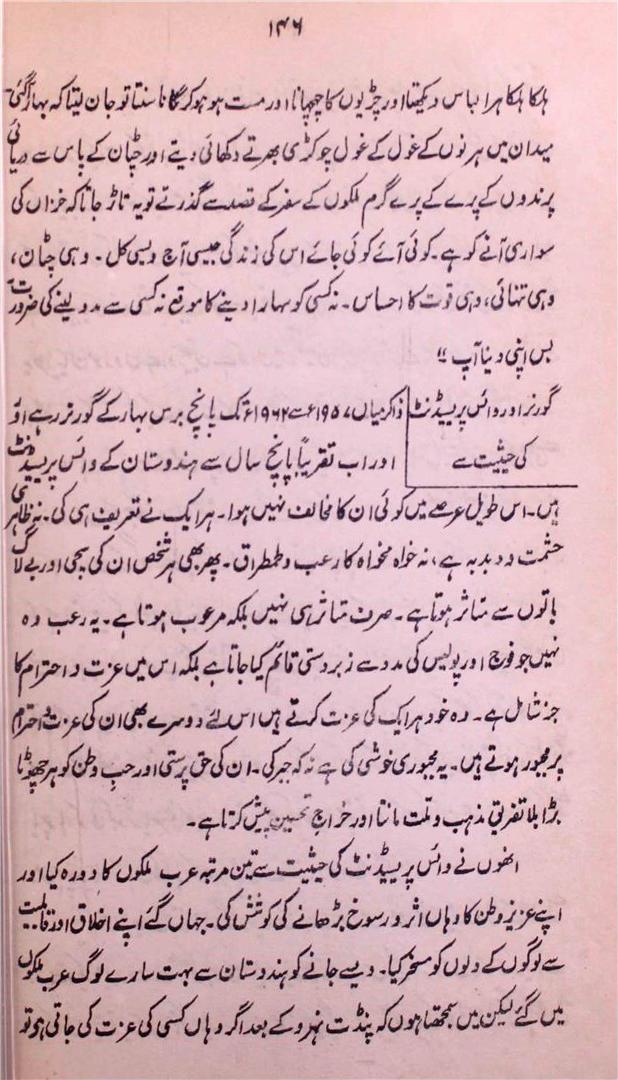 ۱۴۶
ہلکا ہلکا ہرا لباس دیکھتا اور چڑیوں کا چہچہانا اور مست ہو ہو کر گانا سنتا تو جان لیتا کہ بہار آگئی۔
میدان میں ہرنوں کے غول کے غول چوکڑی بھرتے دکھائی دیتے اور چٹان کے پاس سے دریائی
پرندوں کے پرے کے پرے گرم ملکوں کے سفر کے قصد سے گذرتے تو یہ تاڑ جاتا کہ خزاں کی
سواری آنے کو ہے۔ کوئی آئے کوئی جائے اس کی زندگی جیسی آج ویسی کل۔ وہی چٹان،
وہی تنہائی، وہی قوت کا احساس۔ نہ کسی کو سہارا دینے کا موقع نہ کسی سے مدد لینے کی ضرورت۔
بس اپنی دنیا آپ ‘‘
گورنر اور وائس پریسیڈنٹ
کی حیثیت سے
ذاکر میاں ۱۹۵۷ء سے ۱۹۶۲ء تک پانچ برس بہار کے گورنر رہے اؤ
اور اب تقریباً پانچ سال سے ہندوستان کے وائس پریسیڈنٹ
ہیں۔ اس طویل عرصے میں کوئی ان کا مخالف نہیں ہوا۔ ہر ایک نے تعریف ہی کی۔ نہ ظاہری
حشمت و دبدبہ ہے، نہ خواہ مخواہ کا رعب و طمطراق۔ پھر بھی ہر شخص ان کی سچی اور بے لاگ
باتوں سے متاثر ہوتا ہے۔ صرف متاثر ہی نہیں بلکہ مرعوب ہوتا ہے۔ یہ رعب وہ
نہیں جو فوج اور پولیس کی مدد سے زبردستی قائم کیا جاتا ہے بلکہ اس میں عزت و احترام کا
جز شامل ہے۔ وہ خود ہر ایک کی عزت کرتے ہیں اس لئے دوسرے بھی ان کی عزت و احترام
پر مجبور ہوتے ہیں۔ یہ مجبوری خوشی کی ہے نہ کہ جبر کی۔ ان کی حق پرستی اور حب وطن کو ہر چھوٹا
بڑا بلا تفریق مذہب و ملت مانتا اور خراج تحسین پیش کرتا ہے۔
انھوں نے وائس پریسیڈنٹ کی حیثیت سے تین مرتبہ عرب ملکوں کا دورہ کیا اور
اپنے عزیز وطن کا وہاں اثر و رسوخ بڑھانے کی کوشش کی۔ جہاں گئے اپنے اخلاق اور قابلیت
سے لوگوں کے دلوں کو مسخر کیا۔ ویسے جانے کو ہندوستان سے بہت سارے لوگ عرب ملکوں
میں گئے لیکن میں سمجھتا ہوں کہ پنڈت نہرو کے بعد اگر وہاں کسی کی عزت کی جاتی ہی تو